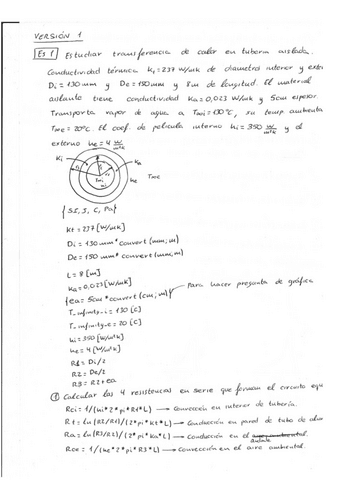 VERSIÓN 1
Ej 1 Estudiar transferencia de calor en tubería aislada.
Conductividad térmica Ki = 237 W/mK de diámetros interior y exterior
Di = 130 mm y De = 150 mm y 8m de longitud. El material
aislante tiene conductividad Ka = 0,023 W/mK y 5cm espesor
Transporta vapor de agua a T∞i = 130°C, su temp ambiente
T∞e = 20°C. El coef. de película interno hi = 350 W/m²K y el
externo he = 4 W/m²K
Ki
Ka
T∞i
T∞e
{S.I, J, C, Pa}
Kt = 237 [W/mK]
Di = 130 mm * convert (mm; m)
De = 150 mm * convert (mm; m)
L = 8 [m]
Ka = 0,023 [W/mK]
{ea = 5cm * convert (cm; m)} Para hacer pregunta de gráfica
T_infinity_i = 130 [C]
T_infinity_e = 20 [C]
hi = 350 [W/m²K]
he = 4 [W/m²K]
R1 = Di/2
R2 = De/2
R3 = R2 + ea
① Calcular las 4 resistencias en serie que forman el circuito equ
Rci = 1/(hi*2*pi*R1*L) → Convección en interior de tubería.
Rt = ln(R2/R1)/(2*pi*Kt*L) → Conducción en pared de tubo de
Ra = ln(R3/R2)/(2*pi*Ka*L) → Conducción en el aislante
Rce = 1/(he*2*pi*R3*L) → Convección en el aire ambiental.